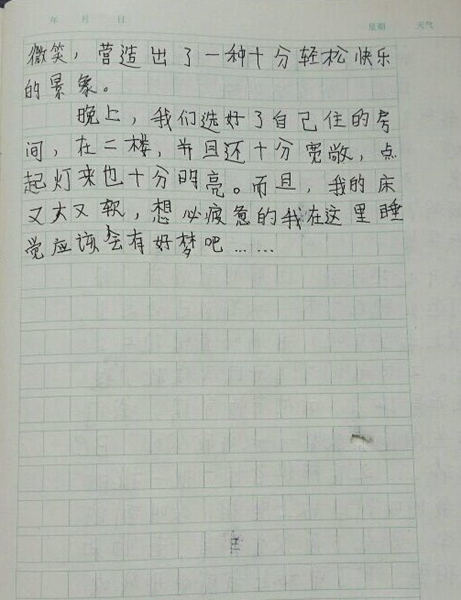 年 月 日 星期 天气
微笑，营造出了一种十分轻松快乐
的景象。
晚上，我们选好了自己住的房
间，在二楼，并且还十分宽敞，点
起灯来也十分明亮。而且，我的床
又大又软，想必疲惫的我在这里睡
觉应该会有好梦吧……